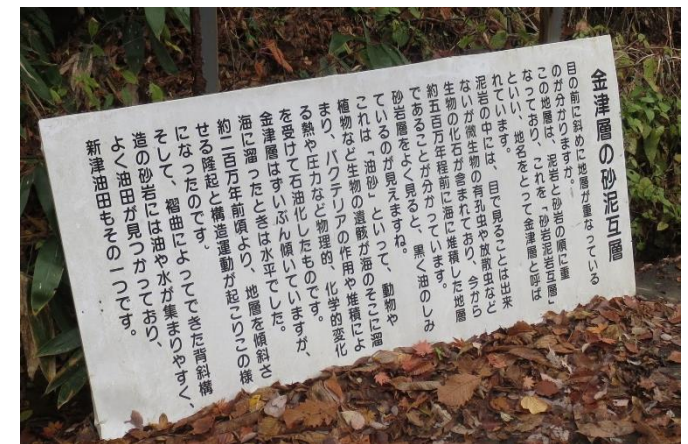 金津層の砂泥互層
目の前に斜めに地層が重なっている
のが分かりますか。
この地層は、泥岩と砂岩の順に重
なっており、これを「砂岩泥岩互層」
といい、地名をとって金津層と呼ば
れています。
泥岩の中には、目で見ることは出来
ないが微生物の有孔虫や放散虫など
生物の化石が含まれており、今から
約五百万年程前に海に堆積した地層
であることが分かっています。
砂岩層をよく見ると、黒く油のしみ
ているのが見えますね。
これは「油砂」といって、動物や
植物など生物の遺骸が海のそこに溜
まり、バクテリアの作用や堆積によ
る熱や圧力など物理的、化学的変化
を受けて石油化したものです。
金津層はずいぶん傾いていますが、
海に溜ったときは水平でした。
約二百万年前頃より、地層を傾斜さ
せる隆起と構造運動が起こりこの様
になったのです。
そして、褶曲によってできた背斜構
造の砂岩には油や水が集まりやすく、
よく油田が見つかっており、
新津油田もその一つです。